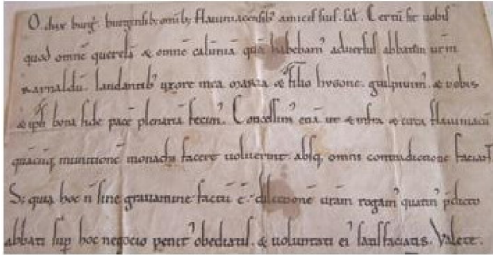 O. dux burḡ. burgensib; omīb; flauiniacensib; amicis suis. sal̄. Certū sit uobis
quod omnē querelā & omnē calūniā quā habebam' aduersus abbatem urm̄
Rainaldū. laudantib; uxore mea & filio hugone. guirpiuim'. & uobis
& ipsi bona fide pacē plenariā fecim'. Concessim' enī ut & infra & circa flauiniacū
quācūq; munitionē monachi facere uoluerint. absq; omni contradictione faciant.
Si quia hoc n̄ sine grauamine factū ē. dilectionē urām rogam' quatin' p̄dicto
abbati sup hoc negocio penit' obediatis. & uoluntati ei' satisfaciatis. Valete.